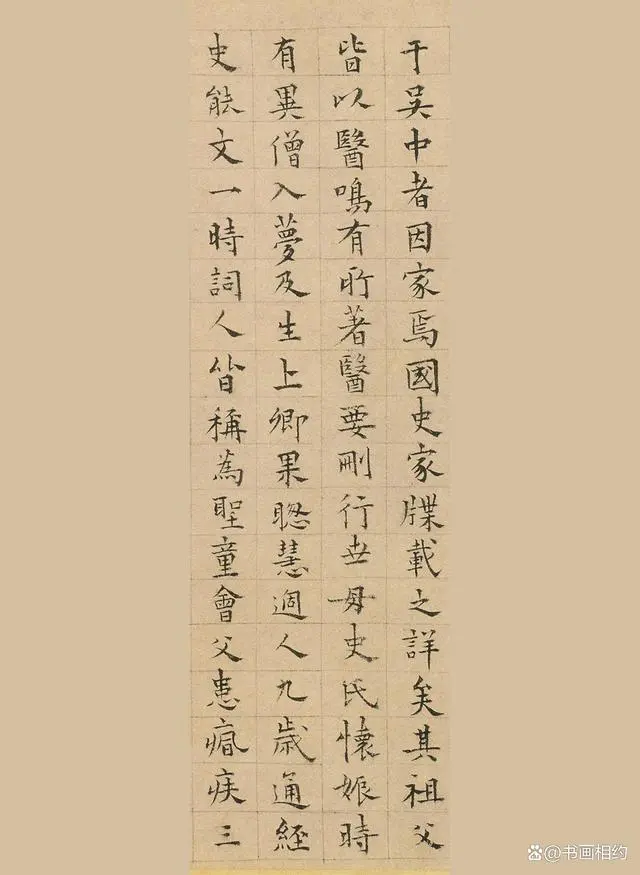 于吴中者因家焉國史家牒載之詳矣其祖父
皆以醫鳴有所著醫要刪行世母史氏懷娠時
有異僧入夢及生上卿果聰慧過人九歲通經
史能文一時詞人皆稱為聖童會父患疾三
@书画相约